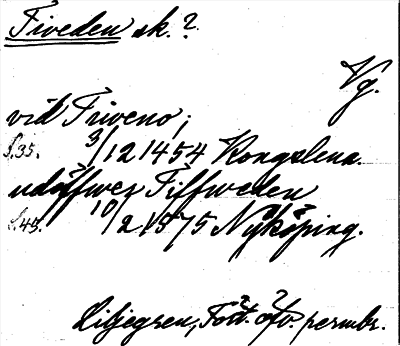 Tiveden sk.?
Vg.
vid Triveno,;
S.35. 3/12 1454 Kongslena.
udöffwer Tiffweden
S.45. 10/2 1575 Nyköping.
Liljegren, Fört. öfv. permbr.